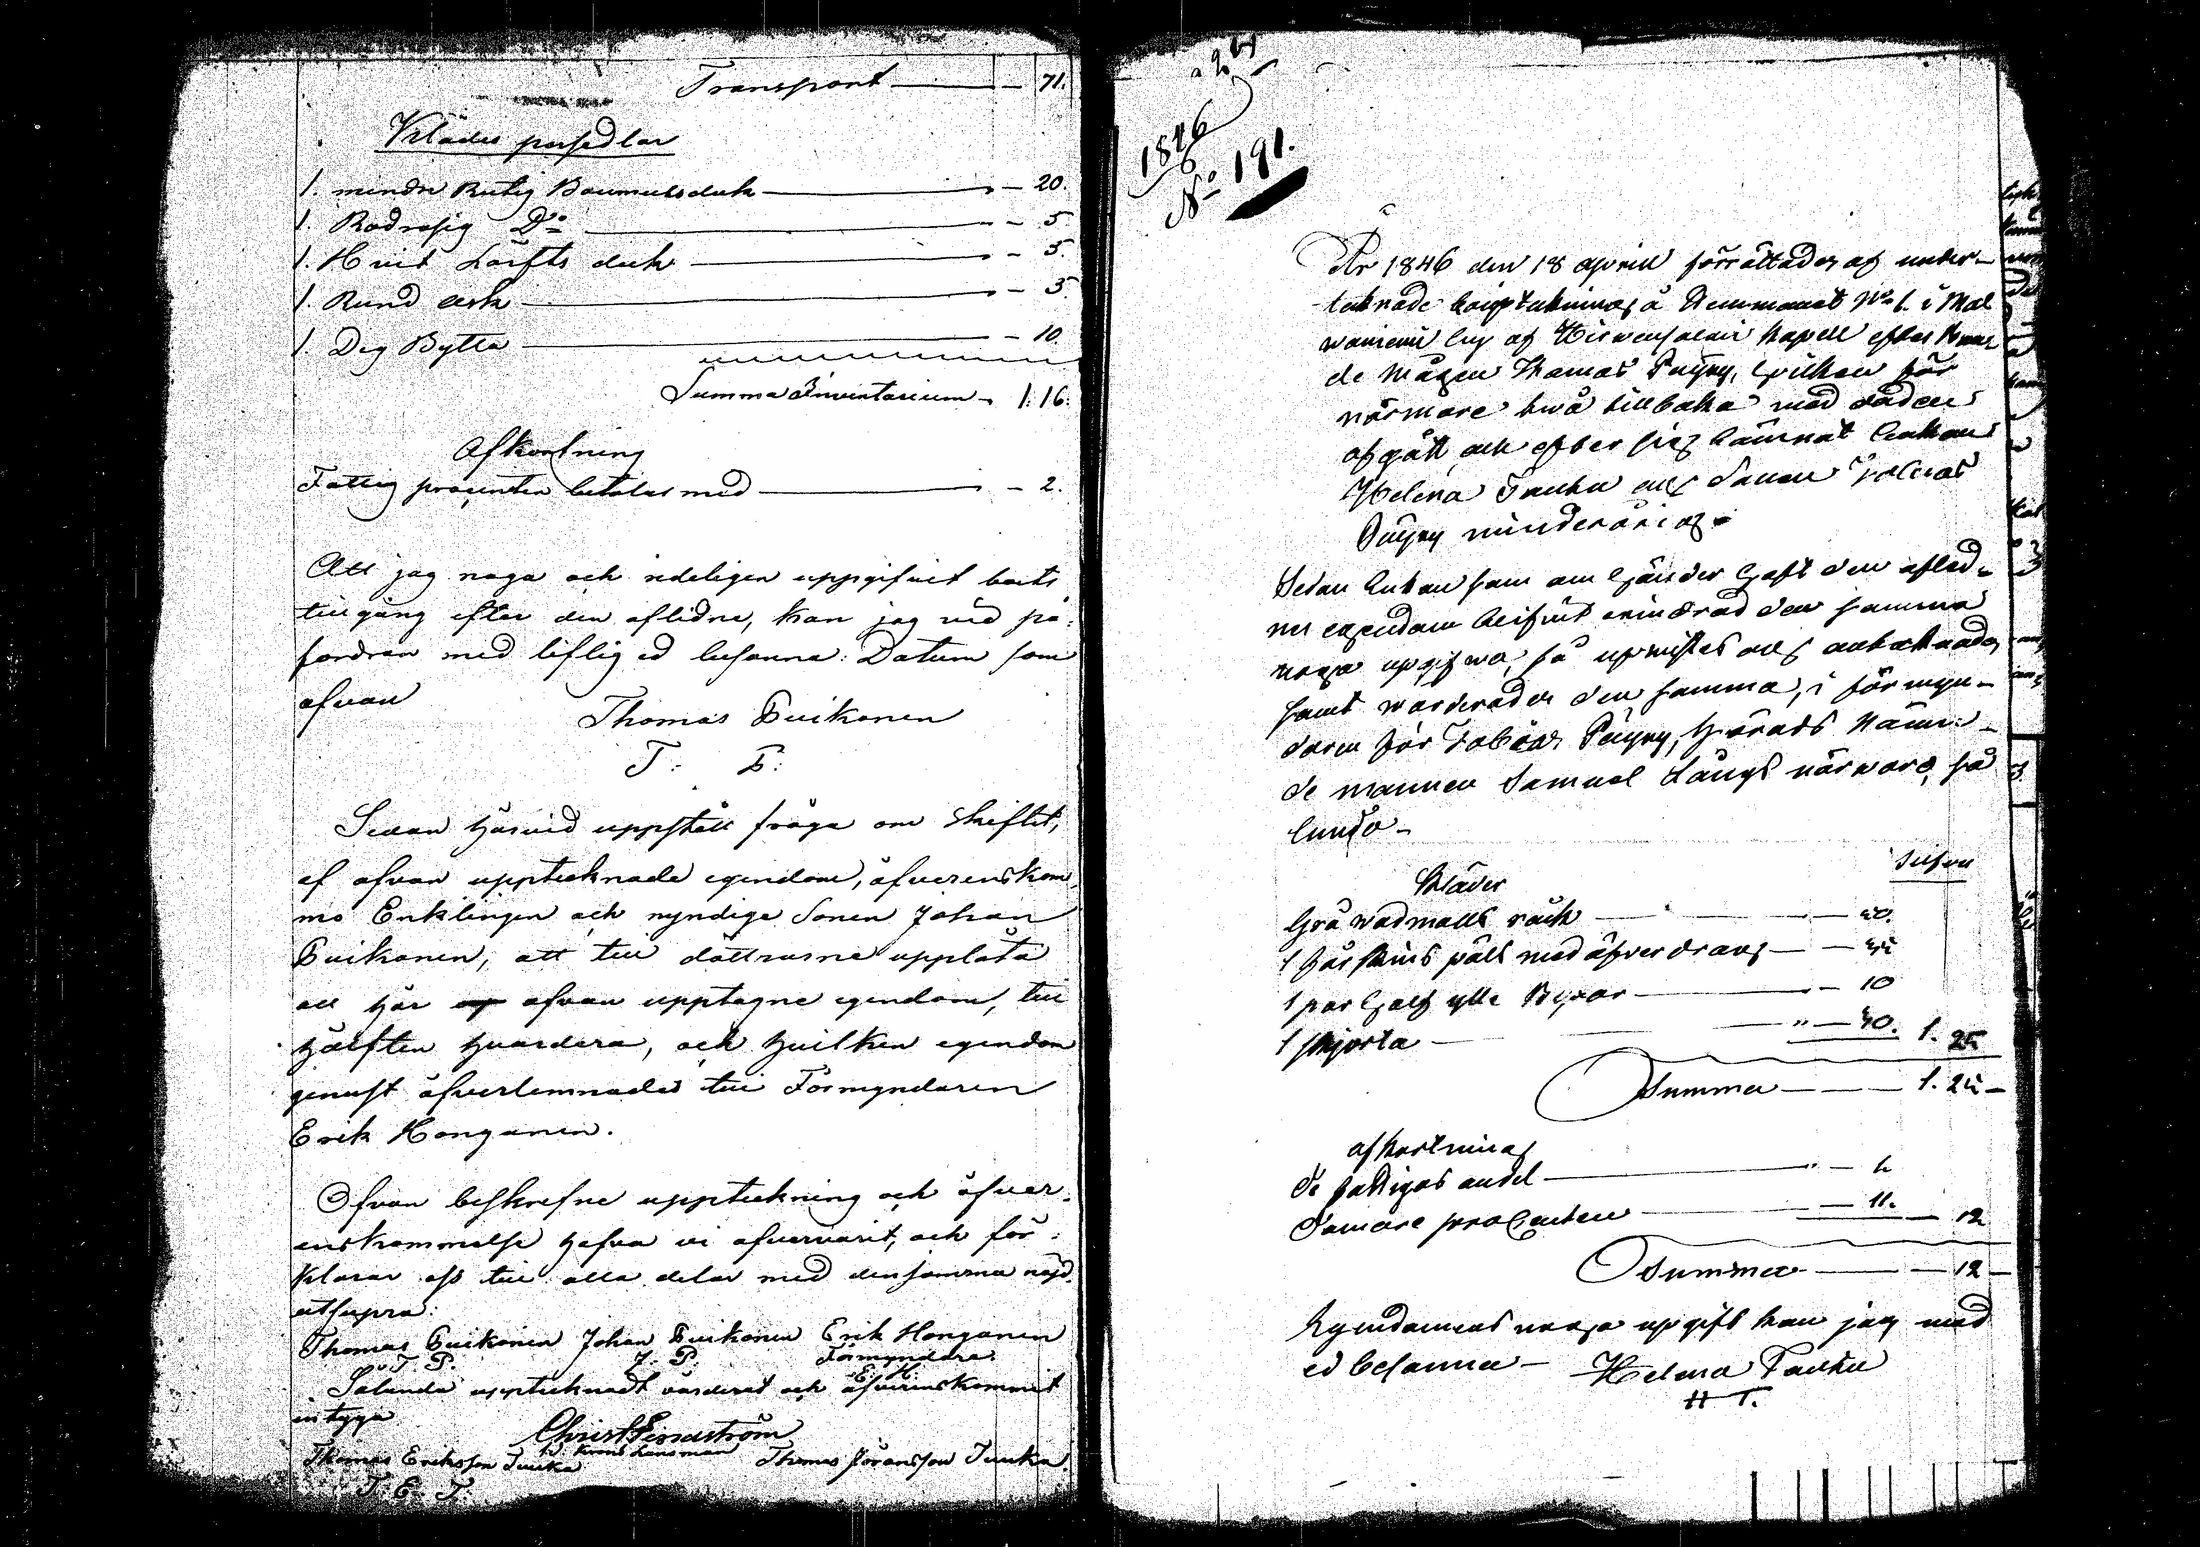 Transport — 71.
Klädes persedlar
1. mindre Rutig Boumulsduk — 20.
1. Rödrosig Do — 5
1. Hvit Lärfts duk — 5.
1. Rund ask — 5.
1. Deg Bytta — 10.
Summa Inventarium — 1. 16.
Afkortning
Fattig procenten betalas med — 2.
Att jag noga och redeligen uppgifvit boets
tillgång efter den aflidne, kan jag vid på-
fordran med liflig ed besanna: Datum som
ofvan
Thomas Puikonen
T. P.
Sedan härvid uppstått fråga om skiftet,
af ofvan upptecknade egendom, öfverenskom-
mo Enklingen och myndige Sonen Johan
Puikonen, att till döttrarne upplåta
all här ofvan upptagne egendom, till
hälften hvardera, och hvilken egendom
genast öfverlemnades till Förmyndaren
Erik Honganen.
Ofvan beskrefne uppteckning och öfver-
enskommelse hafva vi öfvervarit, och för-
klarar oss till alla delar med densamma nöjd.
utsupra:
Thomas Puikonen Johan Puikonen Erik Honganen
T. P. J. P. Förmyndare
E. H.
Sålunda upptecknadt värderat och öfverenskommit
intyga
Christ Lindström
Thomas Eriksson Tuuka Thomas Jöransson Tuuka.
T. E. T.
1846
No 191.
År 1846 den 18 aprill förrättades af under-
teknade å Hemmanet No 1. i
by af Hirvensalmi Kapell efter
de Mågen Thomas hvilken för
närmare två tillbaka med döden
afgått och efter sig lämnat Enkan
Helena och Sonen
minderårig
Sedan Enkan som om händer haft den aflid-
nes egendom blifvit erindrad den samma
noga upgifva, så upvistes och antecknades
samt värderades den samma, i förmyn-
daren för Tobias härads Nämn-
de mannen Samuel närvaro så
lunda
Silfver
Kläder
Grå vadmalls råck
1 fårskins päls med öfverdrag
1 par half ylle Byxor — 10
1 skjorta — 40. 1. 25
Summa — 1. 25
afkortning
De fattigas andel
Domare procenten — 11. 12
Summa — 12
Egendomens noga upgift kan jag med
ed besanna — Helena
H T.